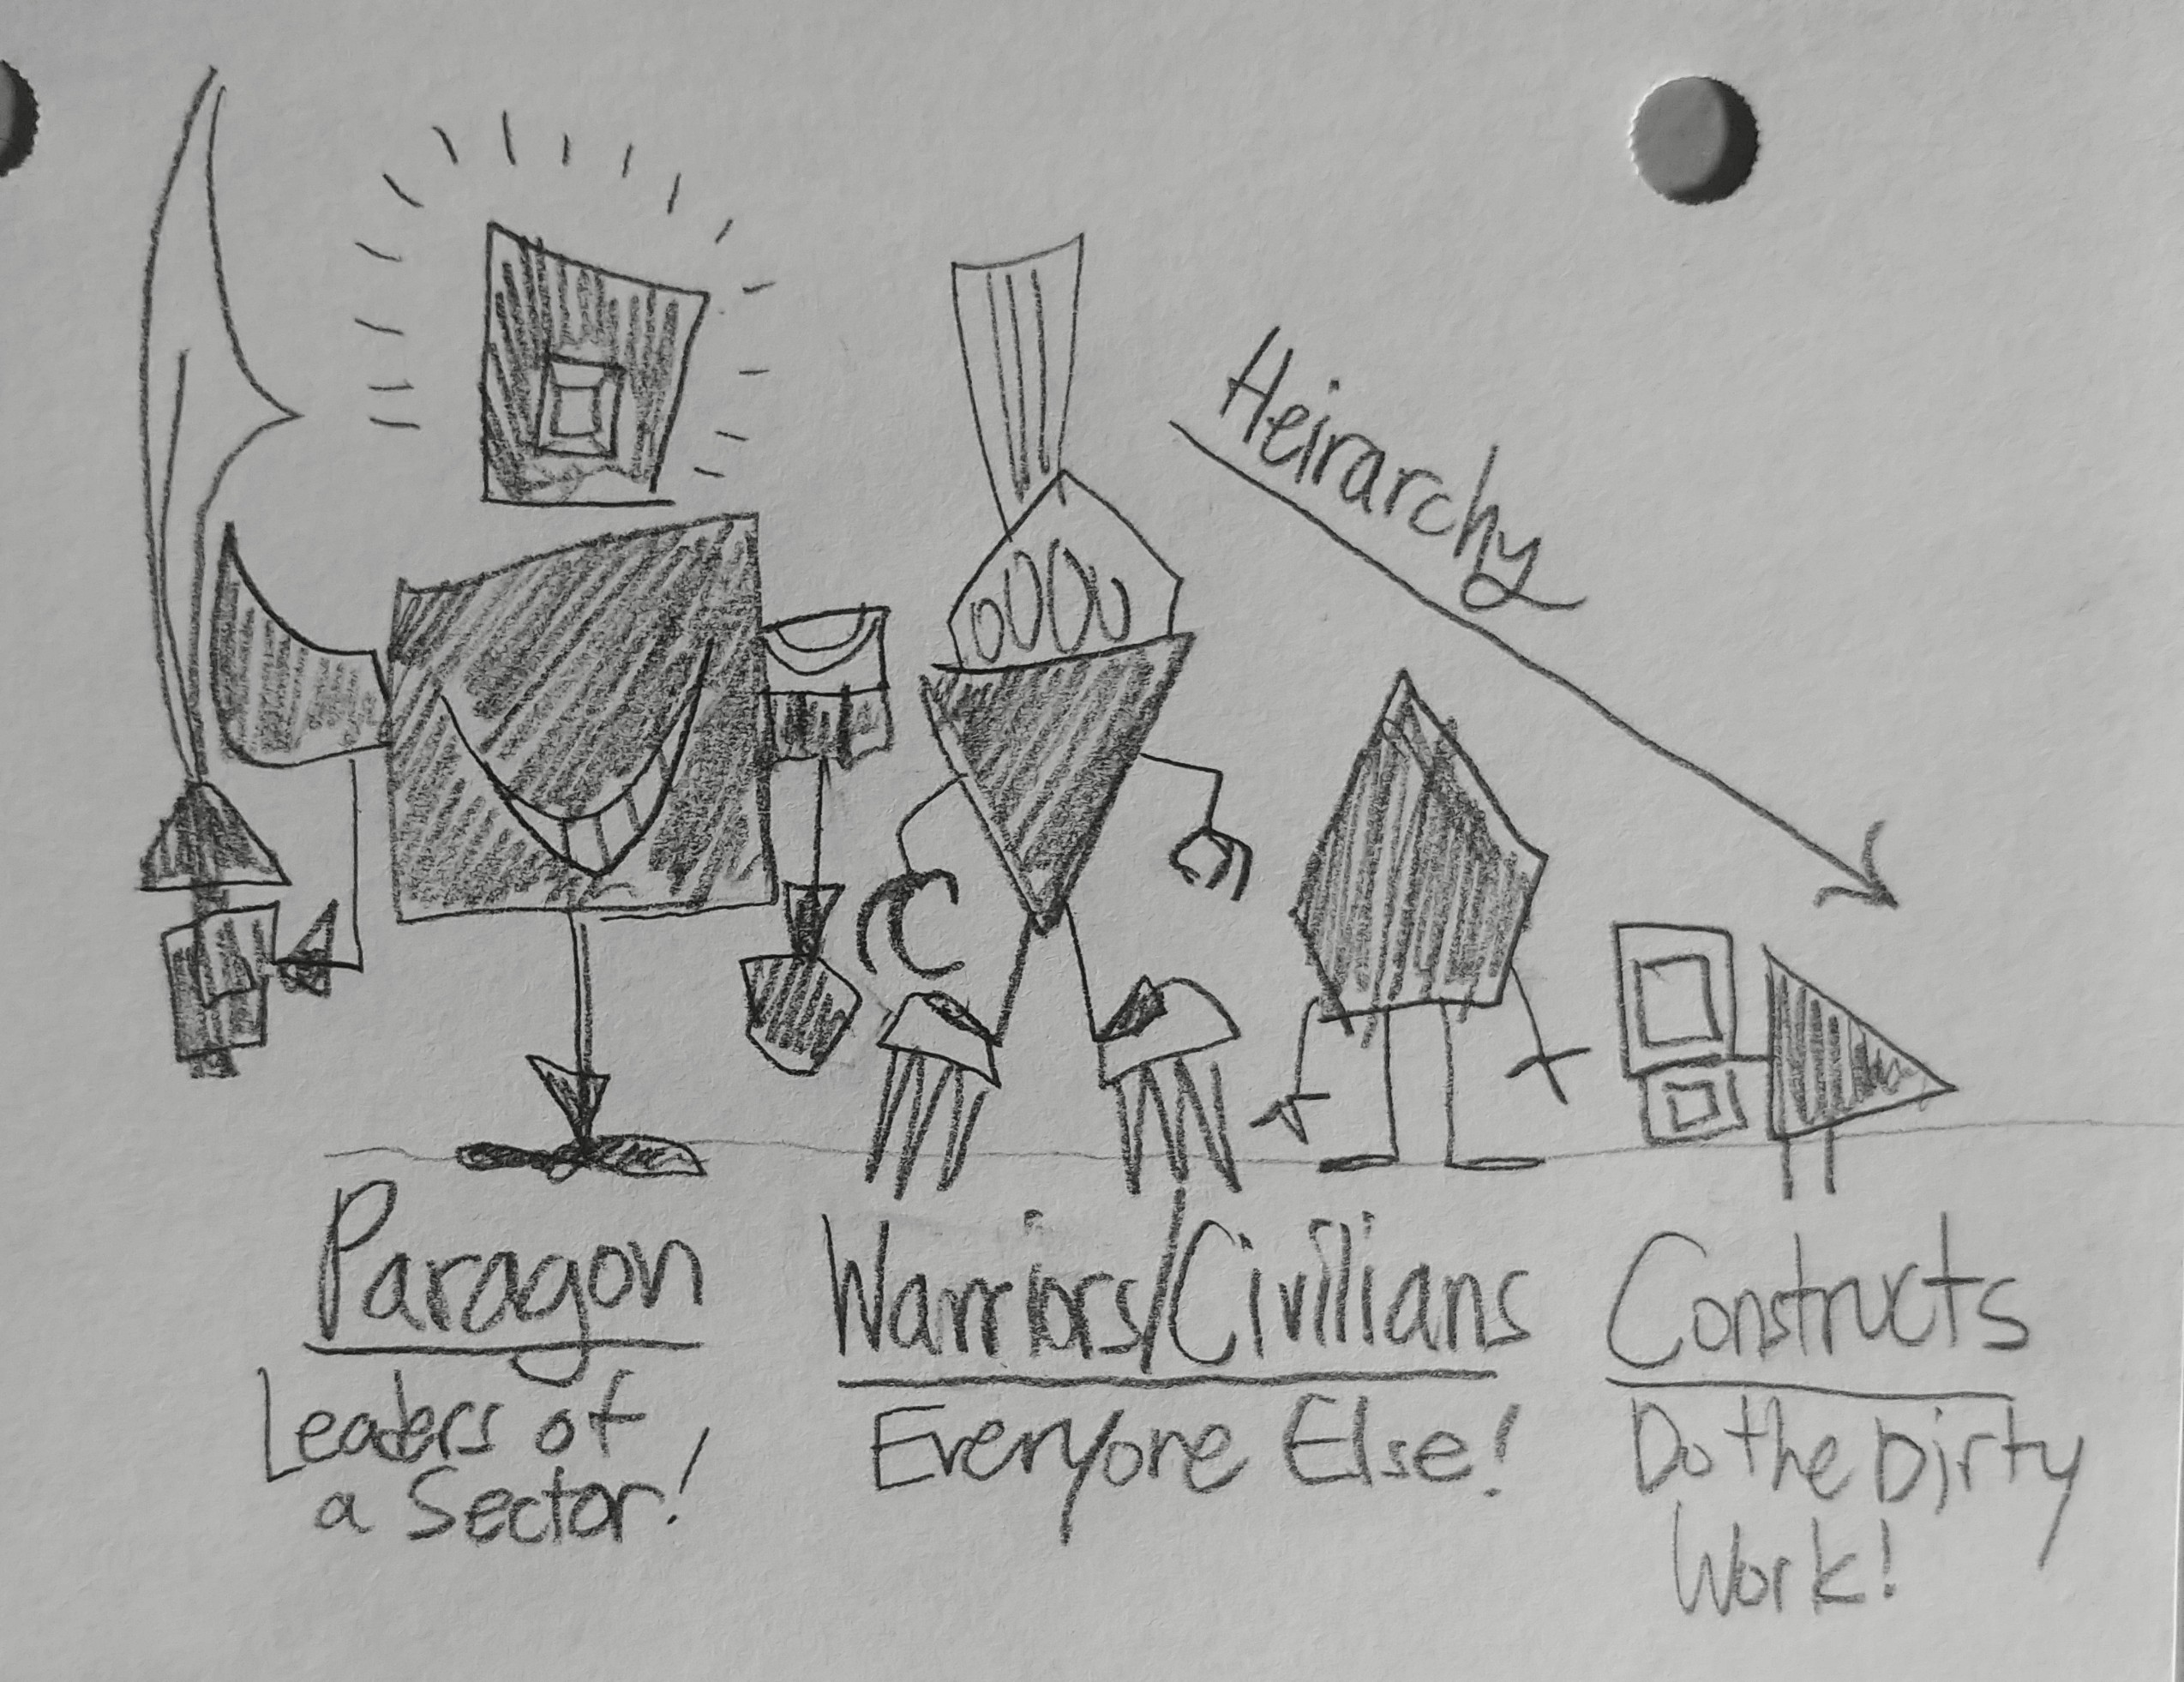 Heirarchy
Paragon
Leaders of
a Sector!
Warriors/Civilians
Everyone Else!
Constructs
Do the Dirty
Work!